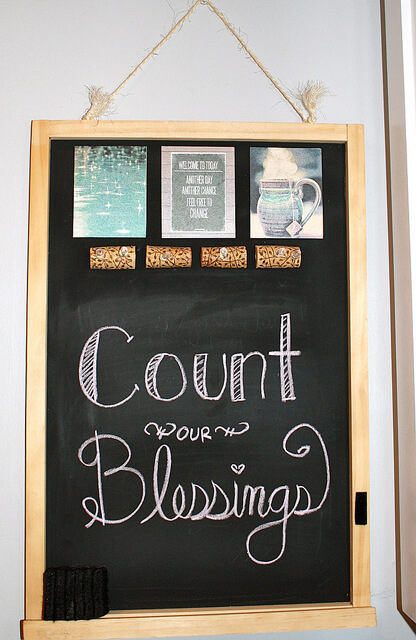 WELCOME TO TODAY
ANOTHER DAY
ANOTHER CHANCE
FEEL FREE TO
CHANGE
Count
OUR
Blessings